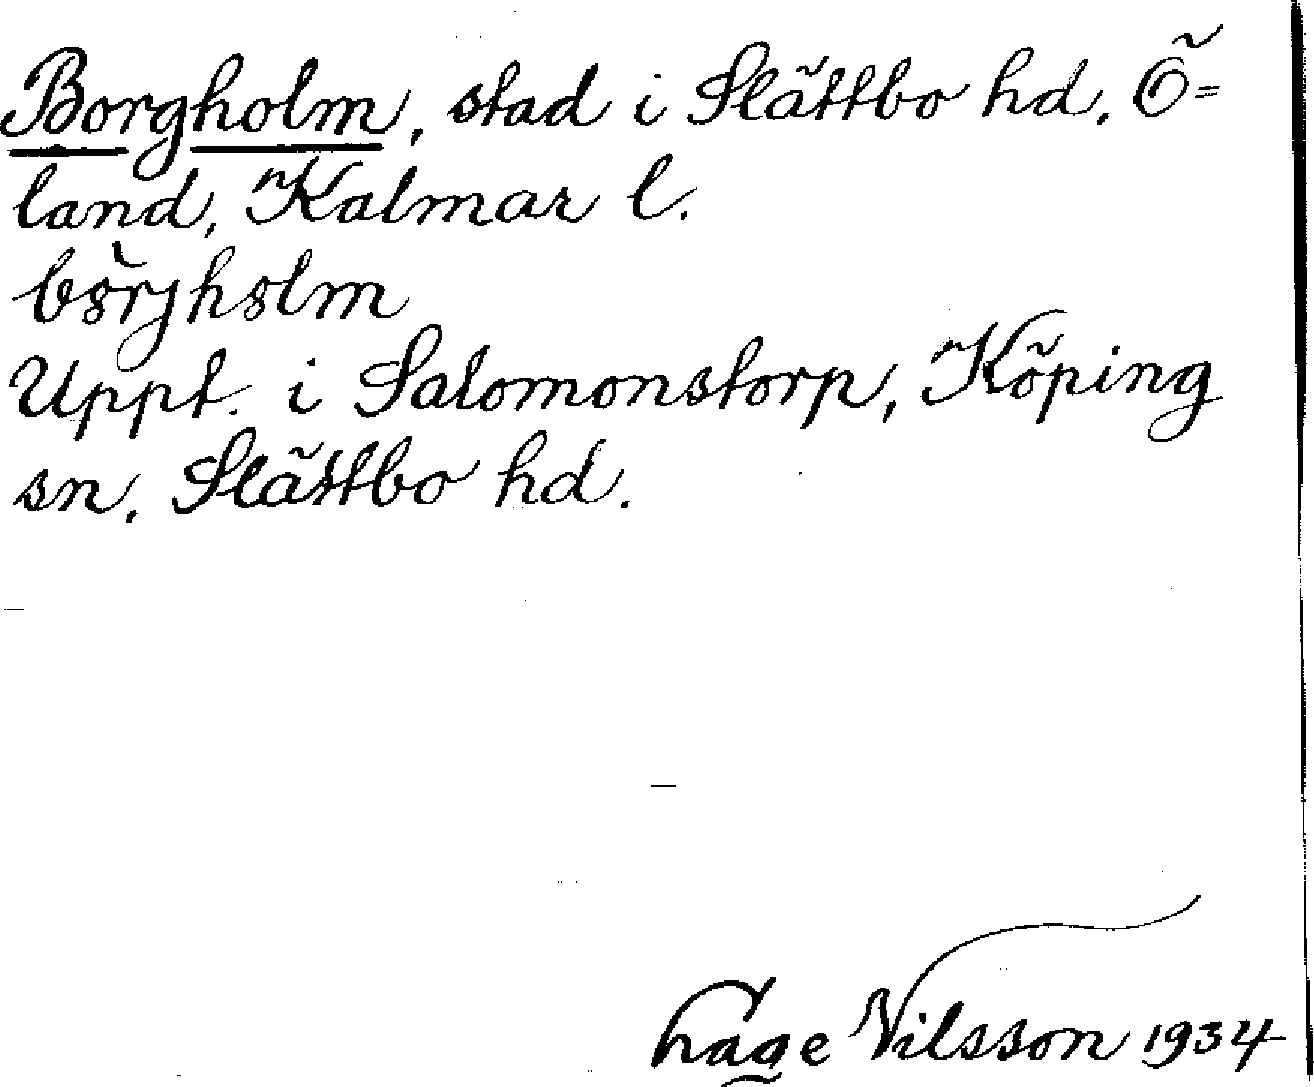 Borgholm, stad i Slättbo hd, Ö=
land, Kalmar l.
bòrjholm
Uppt. i Salomonstorp, Köping
sn, Slättbo hd.
Lage Nilsson 1934